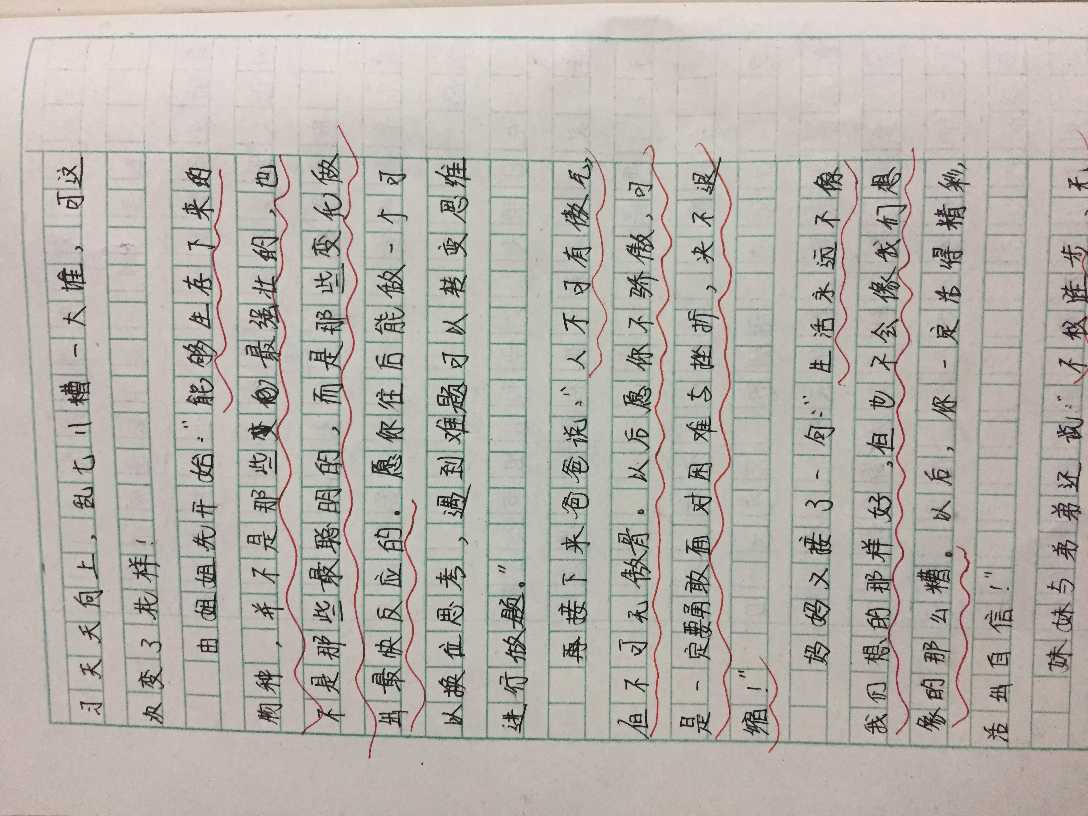 习天天向上，乱七八糟一大堆，可这
次变了花样！
由姐姐先开始：“能够生存下来的
物种，并不是那些变的最强壮的，也
不是那些最聪明的，而是那些变化做
出最快反应的。愿你往后能做一个可
以换位思考，遇到难题可以转变思维
进行做题。”
再接下来爸爸说：“人不可有傲气，
但不可无傲骨。以后愿你不骄傲，可
是一定要勇敢面对困难与挫折，决不退
缩！”
妈妈又接了一句：“生活永远不像
我们想的那样好，但也不会像我们想
象的那么糟。以后，你一定活得精彩，
活出自信！”
妹妹与弟弟还说：“不积跬步，无